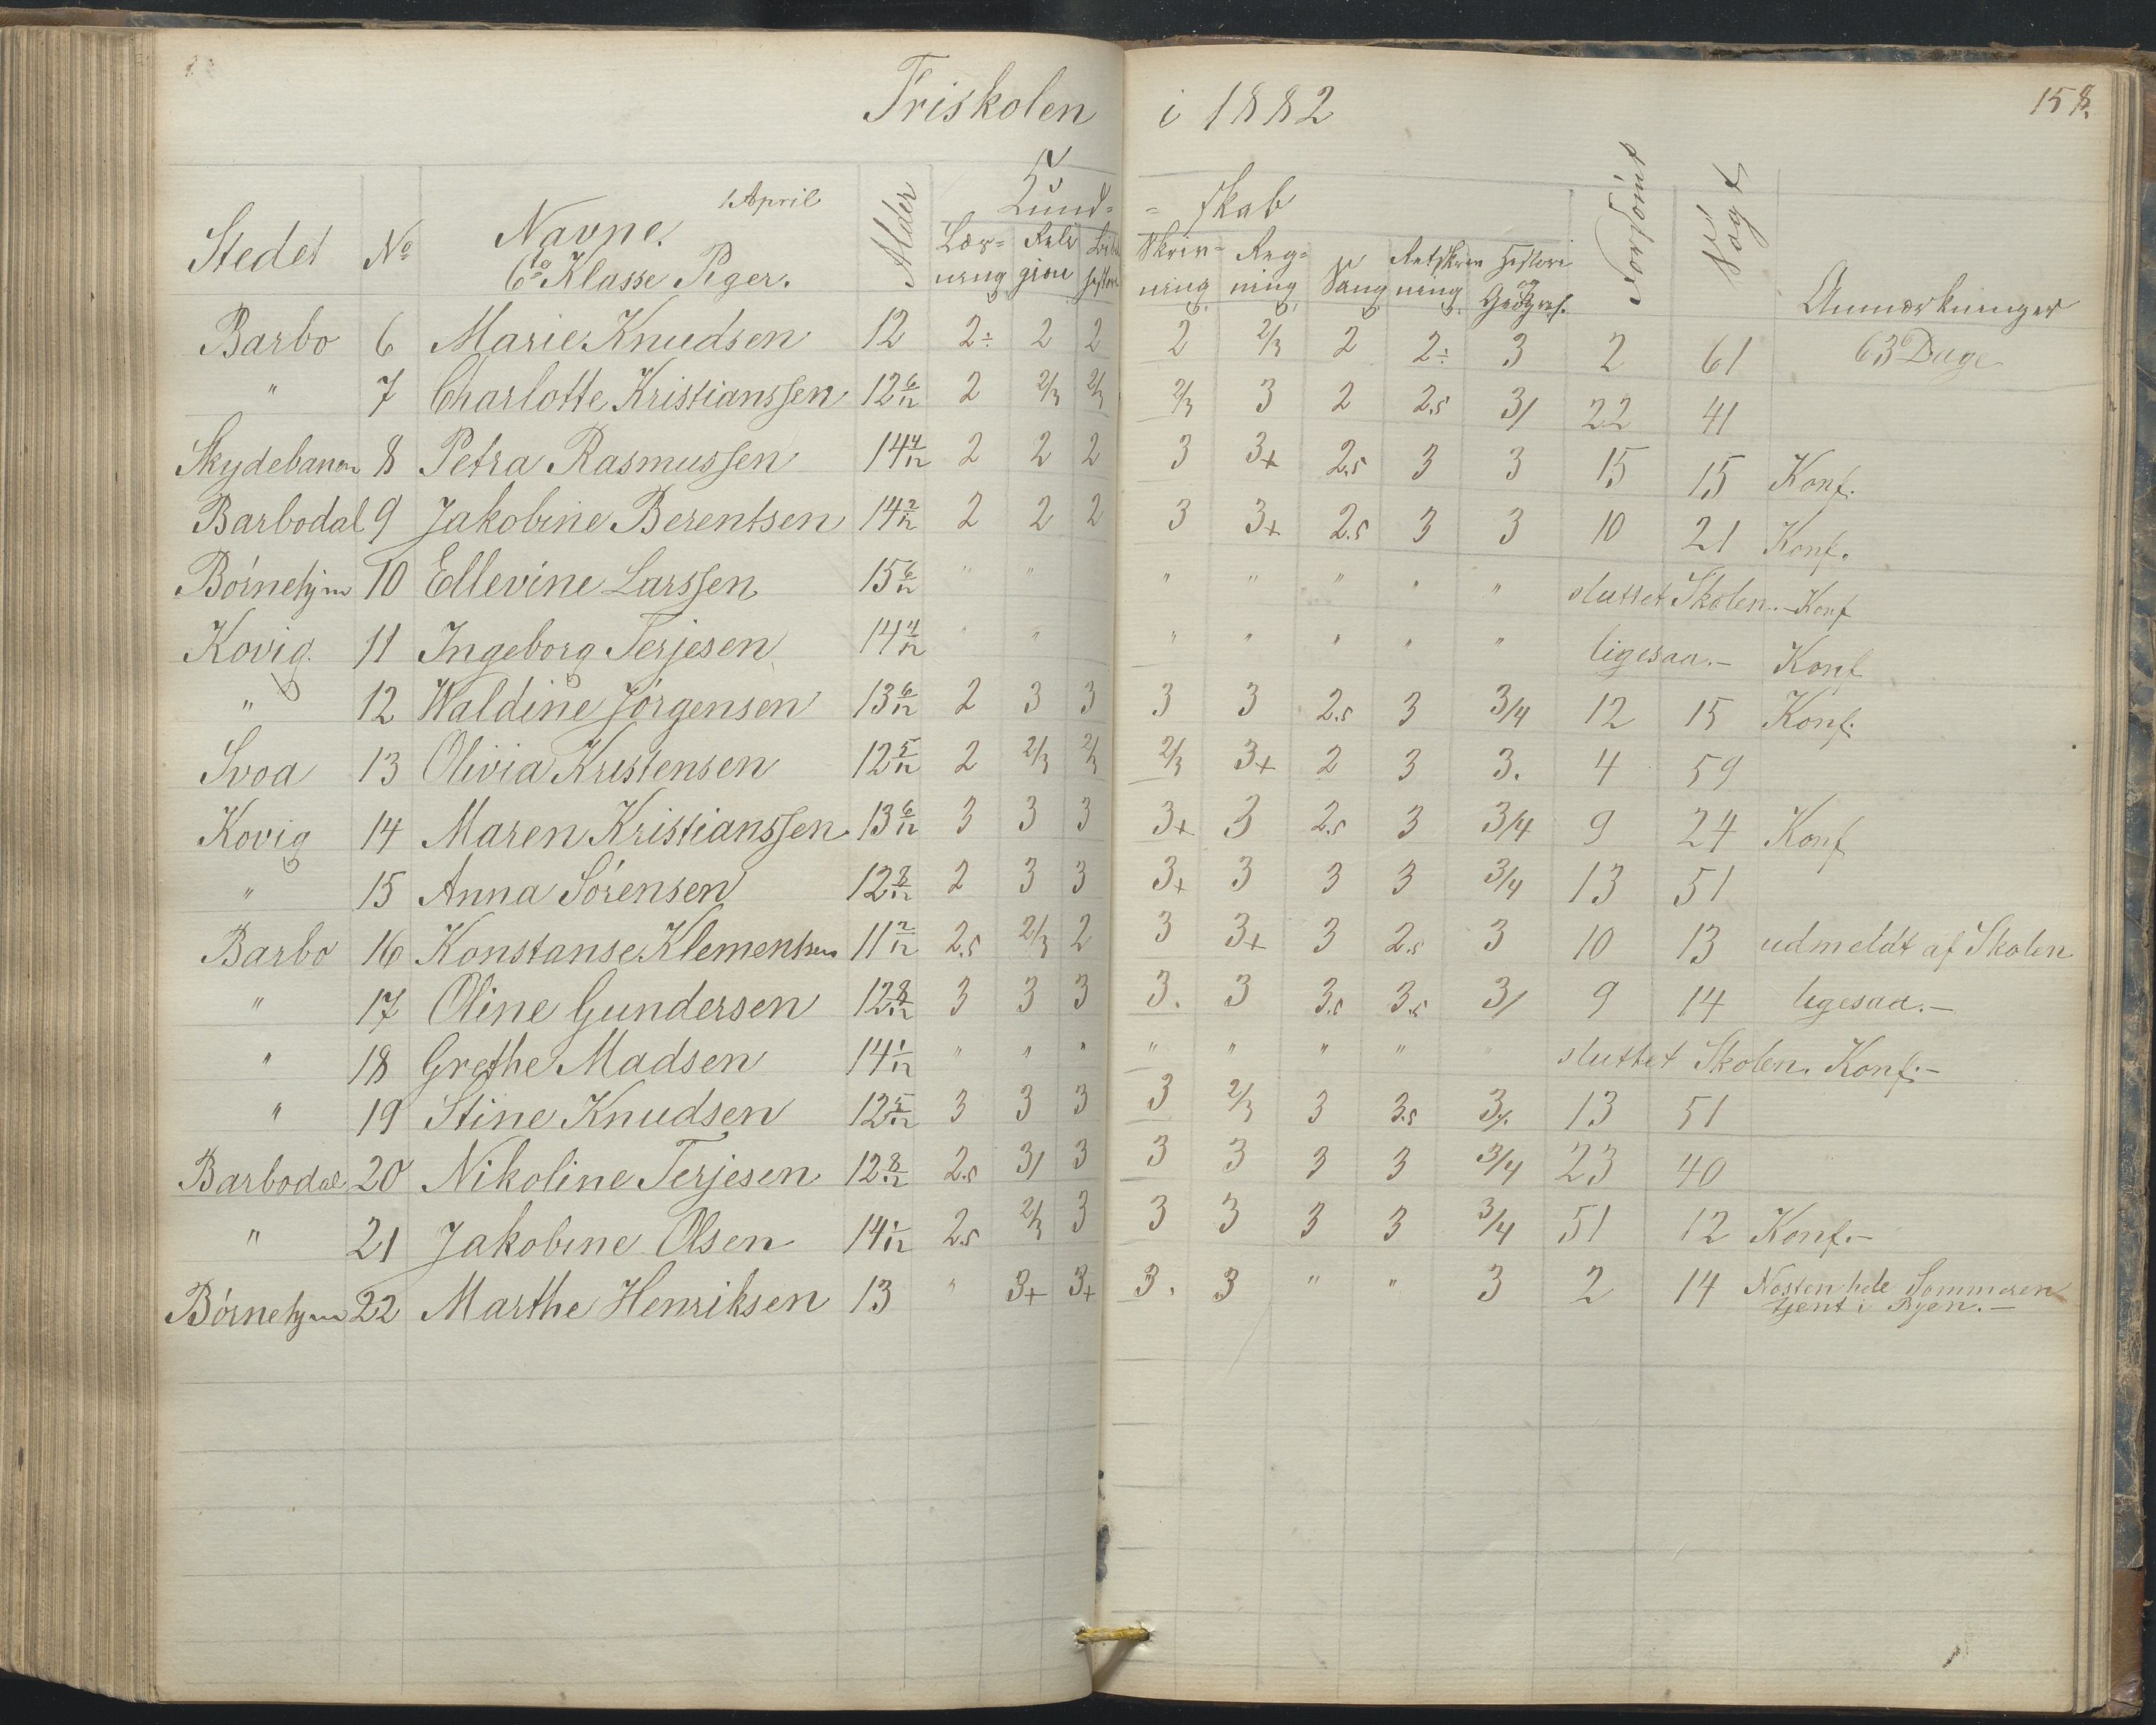 Friskolen i 1882
158.
Stedet No Navne. 1 April Alder Kund- = skab Forsömt Søgt Anmærkninger
6te Klasse Piger. Læs- ning Reli gion Bibl histori Skriv- ning Reg- ning Sang Retskriv ning Histori og Geograf.
Barbo 6 Marie Knudsen 12 2÷ 2 2 2 2/3 2 2÷ 3 2 61 63 Dage
" 7 Charlotte Kristianssen 12 6/12 2 2/3 2/3 2/3 3 2 2.5 3/ 22 41
Skydebanen 8 Petra Rasmussen 14 4/12 2 2 2 3 3+ 2.5 3 3 15 15 Konf.
Barbodal 9 Jakobine Berentsen 14 2/12 2 2 2 3 3+ 2.5 3 3 10 21 Konf.
Börnehjm 10 Ellevine Larssen 15 6/12 " " " " " " " sluttet Skolen.- Konf
Kovig. 11 Ingeborg Terjesen 14 4/12 " " " " " " " ligesaa.- Konf
" 12 Waldine Jörgensen 13 6/12 2 3 3 3 3 2.5 3 3/4 12 15 Konf.
Svoa 13 Olivia Kristensen 12 5/12 2 2/3 2/3 2/3 3+ 2 3 3. 4 59
Kovig 14 Maren Kristianssen 13 6/12 3 3 3 3+ 3 2.5 3 3/4 9 24 Konf
" 15 Anna Sörensen 12 8/12 2 3 3 3+ 3 3 3 3/4 13 51
Barbo 16 Konstanse Klementsen 11 2/12 2.5 2/3 2 3 3+ 3 2.5 3 10 13 udmeldt af Skolen
" 17 Oline Gundersen 12 8/12 3 3 3 3. 3 3.5 3.5 3/ 9 14 ligesaa.-
" 18 Grethe Madsen 14 1/12 " " " " " " " " sluttet Skolen. Konf.-
" 19 Stine Knudsen 12 5/12 3 3 3 3 2/3 3 3.5 3/. 13 51
Barbodal 20 Nikoline Terjesen 12 8/12 2.5 3/ 3 3 3 3 3 3/4 23 40
" 21 Jakobine Olsen 14 1/12 2.5 2/3 3 3 3 3 3 3/4 51 12 Konf.-
Börnehjm 22 Marthe Henriksen 13 " 3+ 3+ 3. 3 " " 3 2 14 Næsten hele Sommeren
tjent i Byen.-